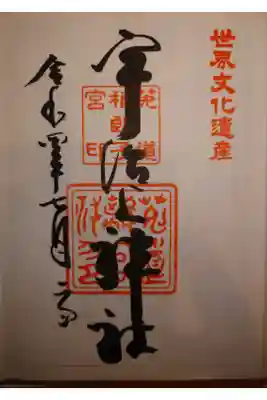 世界文化遺産
宇治上神社
菟道
稚郎子
宮印
令和四年七月